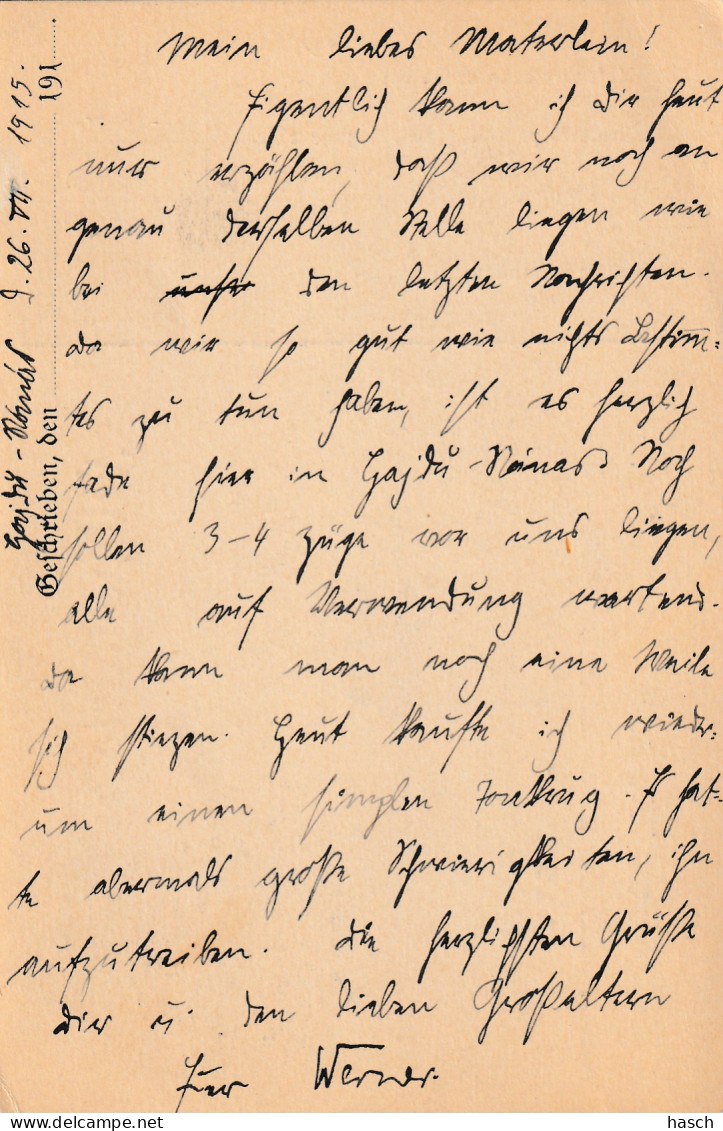 Mein liebes Materlein!
Eigentlich kann ich Dir heut
nur erzählen, daß wir noch an
genau derselben Stelle liegen wie
bei unser den letzten Nachrichten.
Da wir so gut wie nichts Bestimm-
tes zu tun haben, ist es herzlich
fade hier in Hajdu-Nánás. Noch
sollen 3-4 Züge vor uns liegen,
alle auf Verwendung wartend.
Da kann man noch eine Weile
sich Heut kaufte ich wieder-
um einen simplen Tonkrug. Es hat-
te abermals große Schwierigkeiten, ihn
aufzutreiben. Die herzlichsten Grüße
Dir u. den lieben Großeltern
Euer Werner.
Hajdu-Nánás d. 26. VII. 1915.
Geschrieben, den 191
hasch